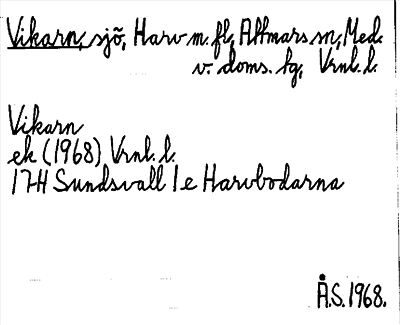 Vikarn, sjö, Harv m. fl., Attmars sn, Med.
v. doms. tg, Vrnl. l.
Vikarn
ek (1968) Vrnl. l.
17H Sundsvall 1e Harvbodarna
Å.S. 1968.